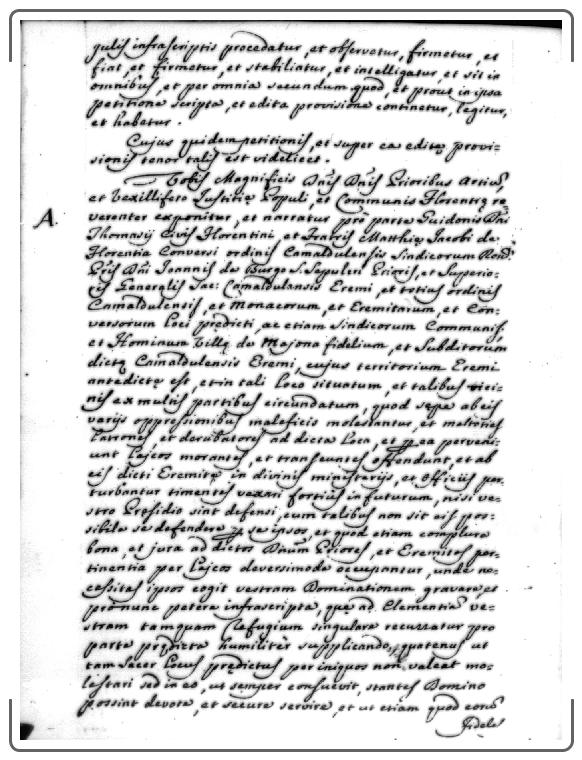 gulis infrascriptis procedatur, et observetur, firmetur, et
fiat, et firmetur, et stabiliatur, et intelligatur, et sit in
omnibus, et per omnia secundum quod, et prout in ipsa
petitione scripta, et edita provisione continetur, legitur,
et habetur.
Cujus quidem petitionis, et super ea editę provi=
sionis tenor talis est videlicet.
Vobis Magnificis Dñis Dñis Prioribus Artiũ,
et Vexillifero Justitię Populi, et Communis Florentię re
A.
verenter exponitur, et narratur pro parte Guidonis Dñi
Thomasij Civis Florentini, et Fratris Matthię Jacobi de
Florentia Conversi ordinis Camaldulensis Sindicorum
Pris Dñi Joannis de Burgo S. Sepulcri Prioris, et Superio=
ris Generalis Sac: Camaldulansis Eremi, et totius ordinis
Camaldulensis, et Monacorum, et Eremitarum, et Con=
versorum Loci predicti, ac etiam Sindicorum Communis,
et Hominum Villę de Majona fidelium, et Subditorum
dictę Camaldulensis Eremi, cujus territorium Eremi
antedictę est, et in tali loco situatum, et talibus vici=
nis ex multis partibus circundatum, quod sępe ab eis
varijs oppressionibus maleficis molestantur, et
Latrones, et derubatores ad dicta Loca, et p ea perveni=
unt Lajcos morantes, et transeuntes offendunt, et ab
eis dicti Eremitę in divinis ministerijs, et Officijs per=
turbantur timentes vexari fortius in futurum, nisi ve=
stro Presidio sint defensi, cum talibus non sit eis pos=
sibile se defendere se ipsos, et quod etiam complura
bona, et jura ad dictos Dñum Priores, et Eremitas per=
tinentia per Lajcos diversimode occupantur, unde ne=
cessitas ipsos cogit vestram Dominationem gravare, et
pro nunc petere infrascripta, quę ad Clementiã ve=
stram tamquam Refugium singulare recurratur pro
parte prędicta humiliter supplicando, quatenus ut
tam Sacer Locus prędictus per iniquos non valeat mo=
lestari sed in eo, ut semper consuevit, stantes Domino
possint devote, et secure servire, et ut etiam quod eorũ
Fidele